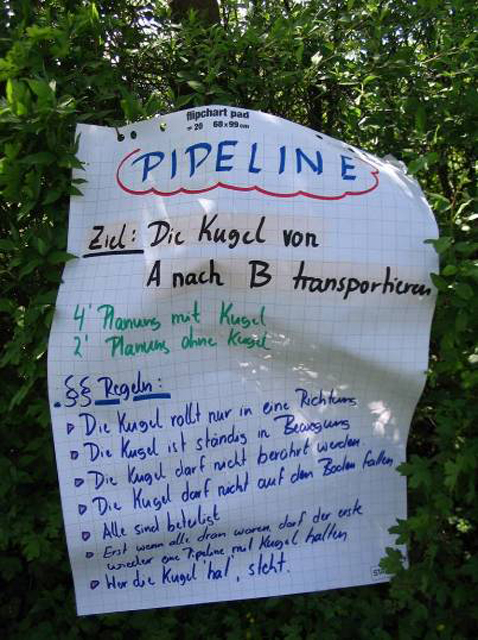 flipchart pad
= 20 68 x 99 cm
PIPELINE
Ziel: Die Kugel von
A nach B transportieren
4' Planung mit Kugel
2' Planung ohne Kugel
§§ Regeln:
Die Kugel rollt nur in eine Richtung
Die Kugel ist ständig in Bewegung
Die Kugel darf nicht berührt werden.
Die Kugel darf nicht auf den Boden fallen
Alle sind beteiligt
Erst wenn alle dran waren, darf der erste
wieder eine Pipeline mit Kugel halten
Wer die Kugel "hat", steht.